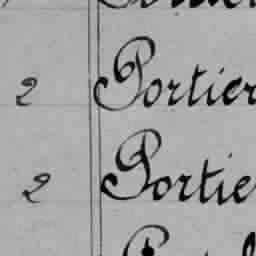 2 Portier
2 Portie